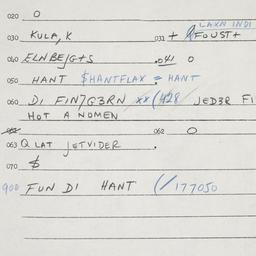 020 O
LAXN INDI
030 KULA, K 031 + FOUST+
040 ELNBEJG+S .041 O
050 HANT $HANTFLAX = HANT
060 DI FIN7G3RN xx(428 JED3R FI
HOT A NOMEN
062 O
063 Q LAT JETVIDER
070 $
900 FUN DI HANT (/177050